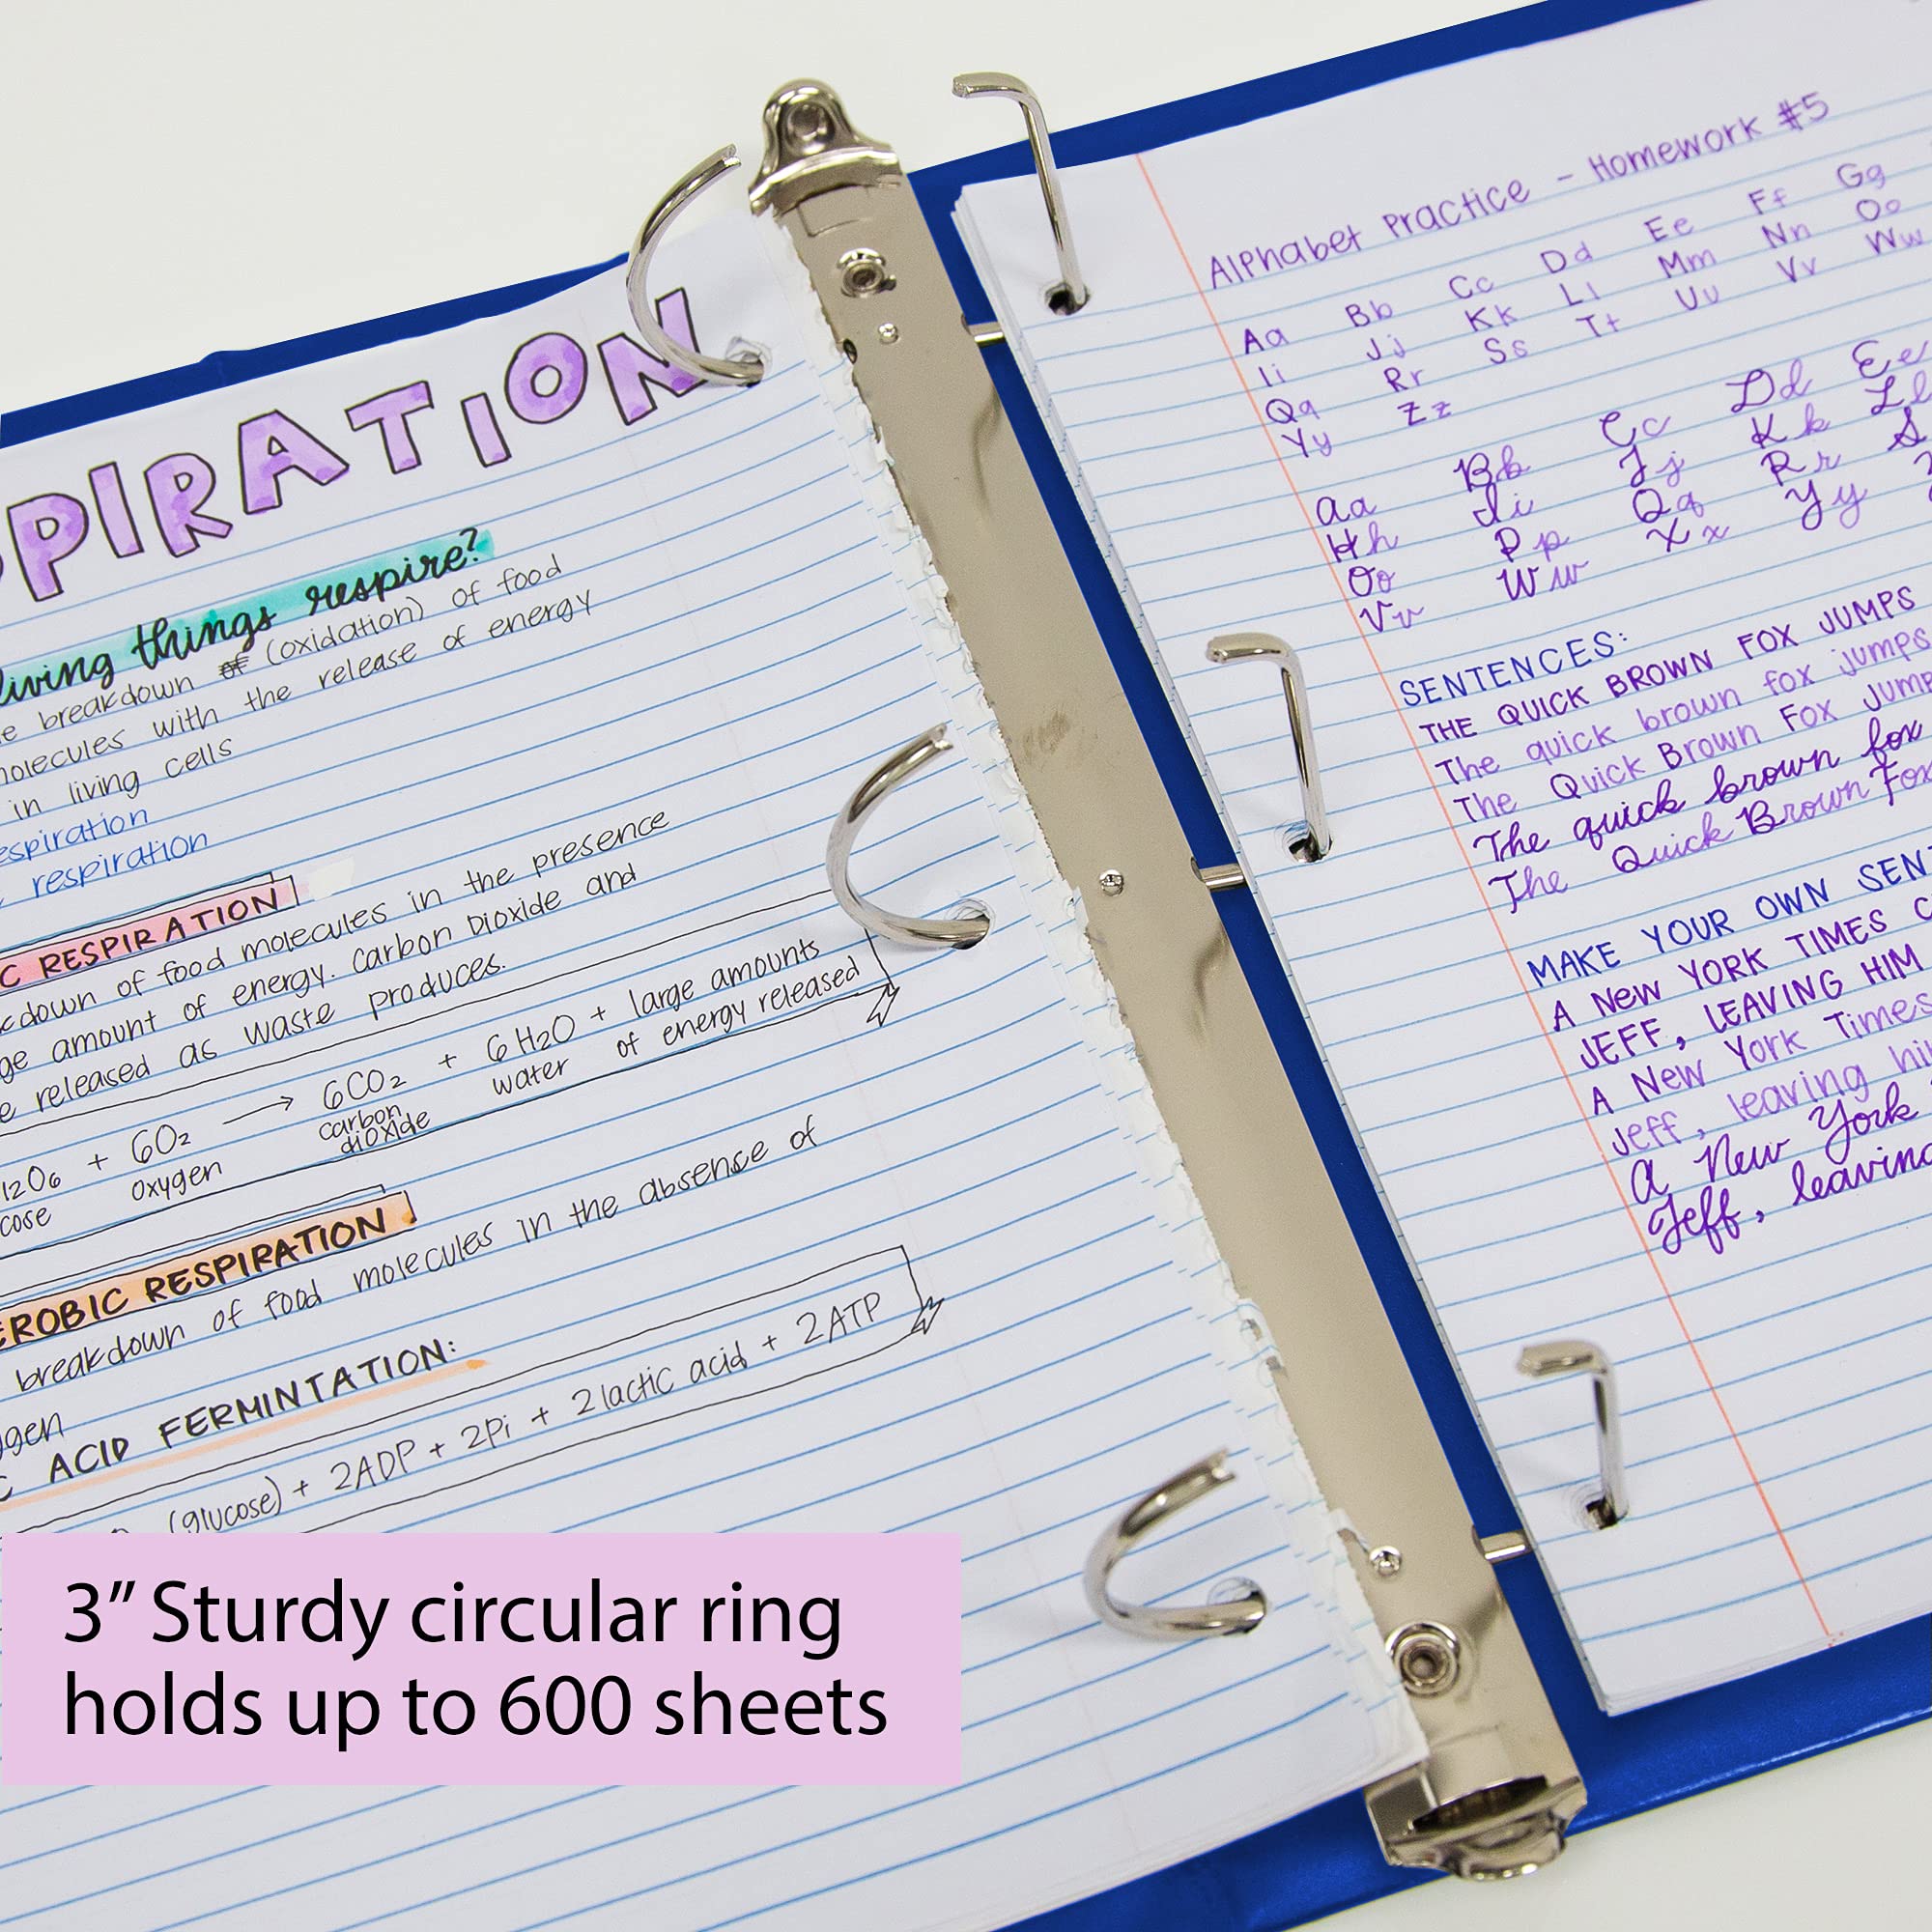 PIRATION
living things respire?
breakdown of (oxidation) of food
molecules with the release of energy
in living cells
respiration
respiration
C RESPIRATION
down of food molecules in the presence
amount of energy. Carbon Dioxide and
released as waste produces.
12O6 + 6O2 → 6CO2 + 6H2O + large amounts
cose oxygen carbon dioxide water of energy released
EROBIC RESPIRATION
breakdown of food molecules in the absence of
gen
C ACID FERMINTATION:
(glucose) + 2ADP + 2Pi + 2 lactic acid + 2ATP
Alphabet Practice - Homework #5
Aa Bb Cc Dd Ee Ff Gg
Ii Jj Kk Ll Mm Nn Oo
Qq Rr Ss Tt Uu Vv Ww
Yy Zz
Aa Bb Cc Dd Ee
Hh Ii Jj Kk Ll
Oo Pp Qq Rr S
Vv Ww Xx Yy
SENTENCES:
THE QUICK BROWN FOX JUMPS
The quick brown fox jumps
The Quick Brown Fox Jump
The quick brown fox
The Quick Brown Fox
MAKE YOUR OWN SENT
A NEW YORK TIMES C
JEFF, LEAVING HIM
A New York Times
Jeff, leaving hi
A New York
Jeff, leaving
3" Sturdy circular ring
holds up to 600 sheets